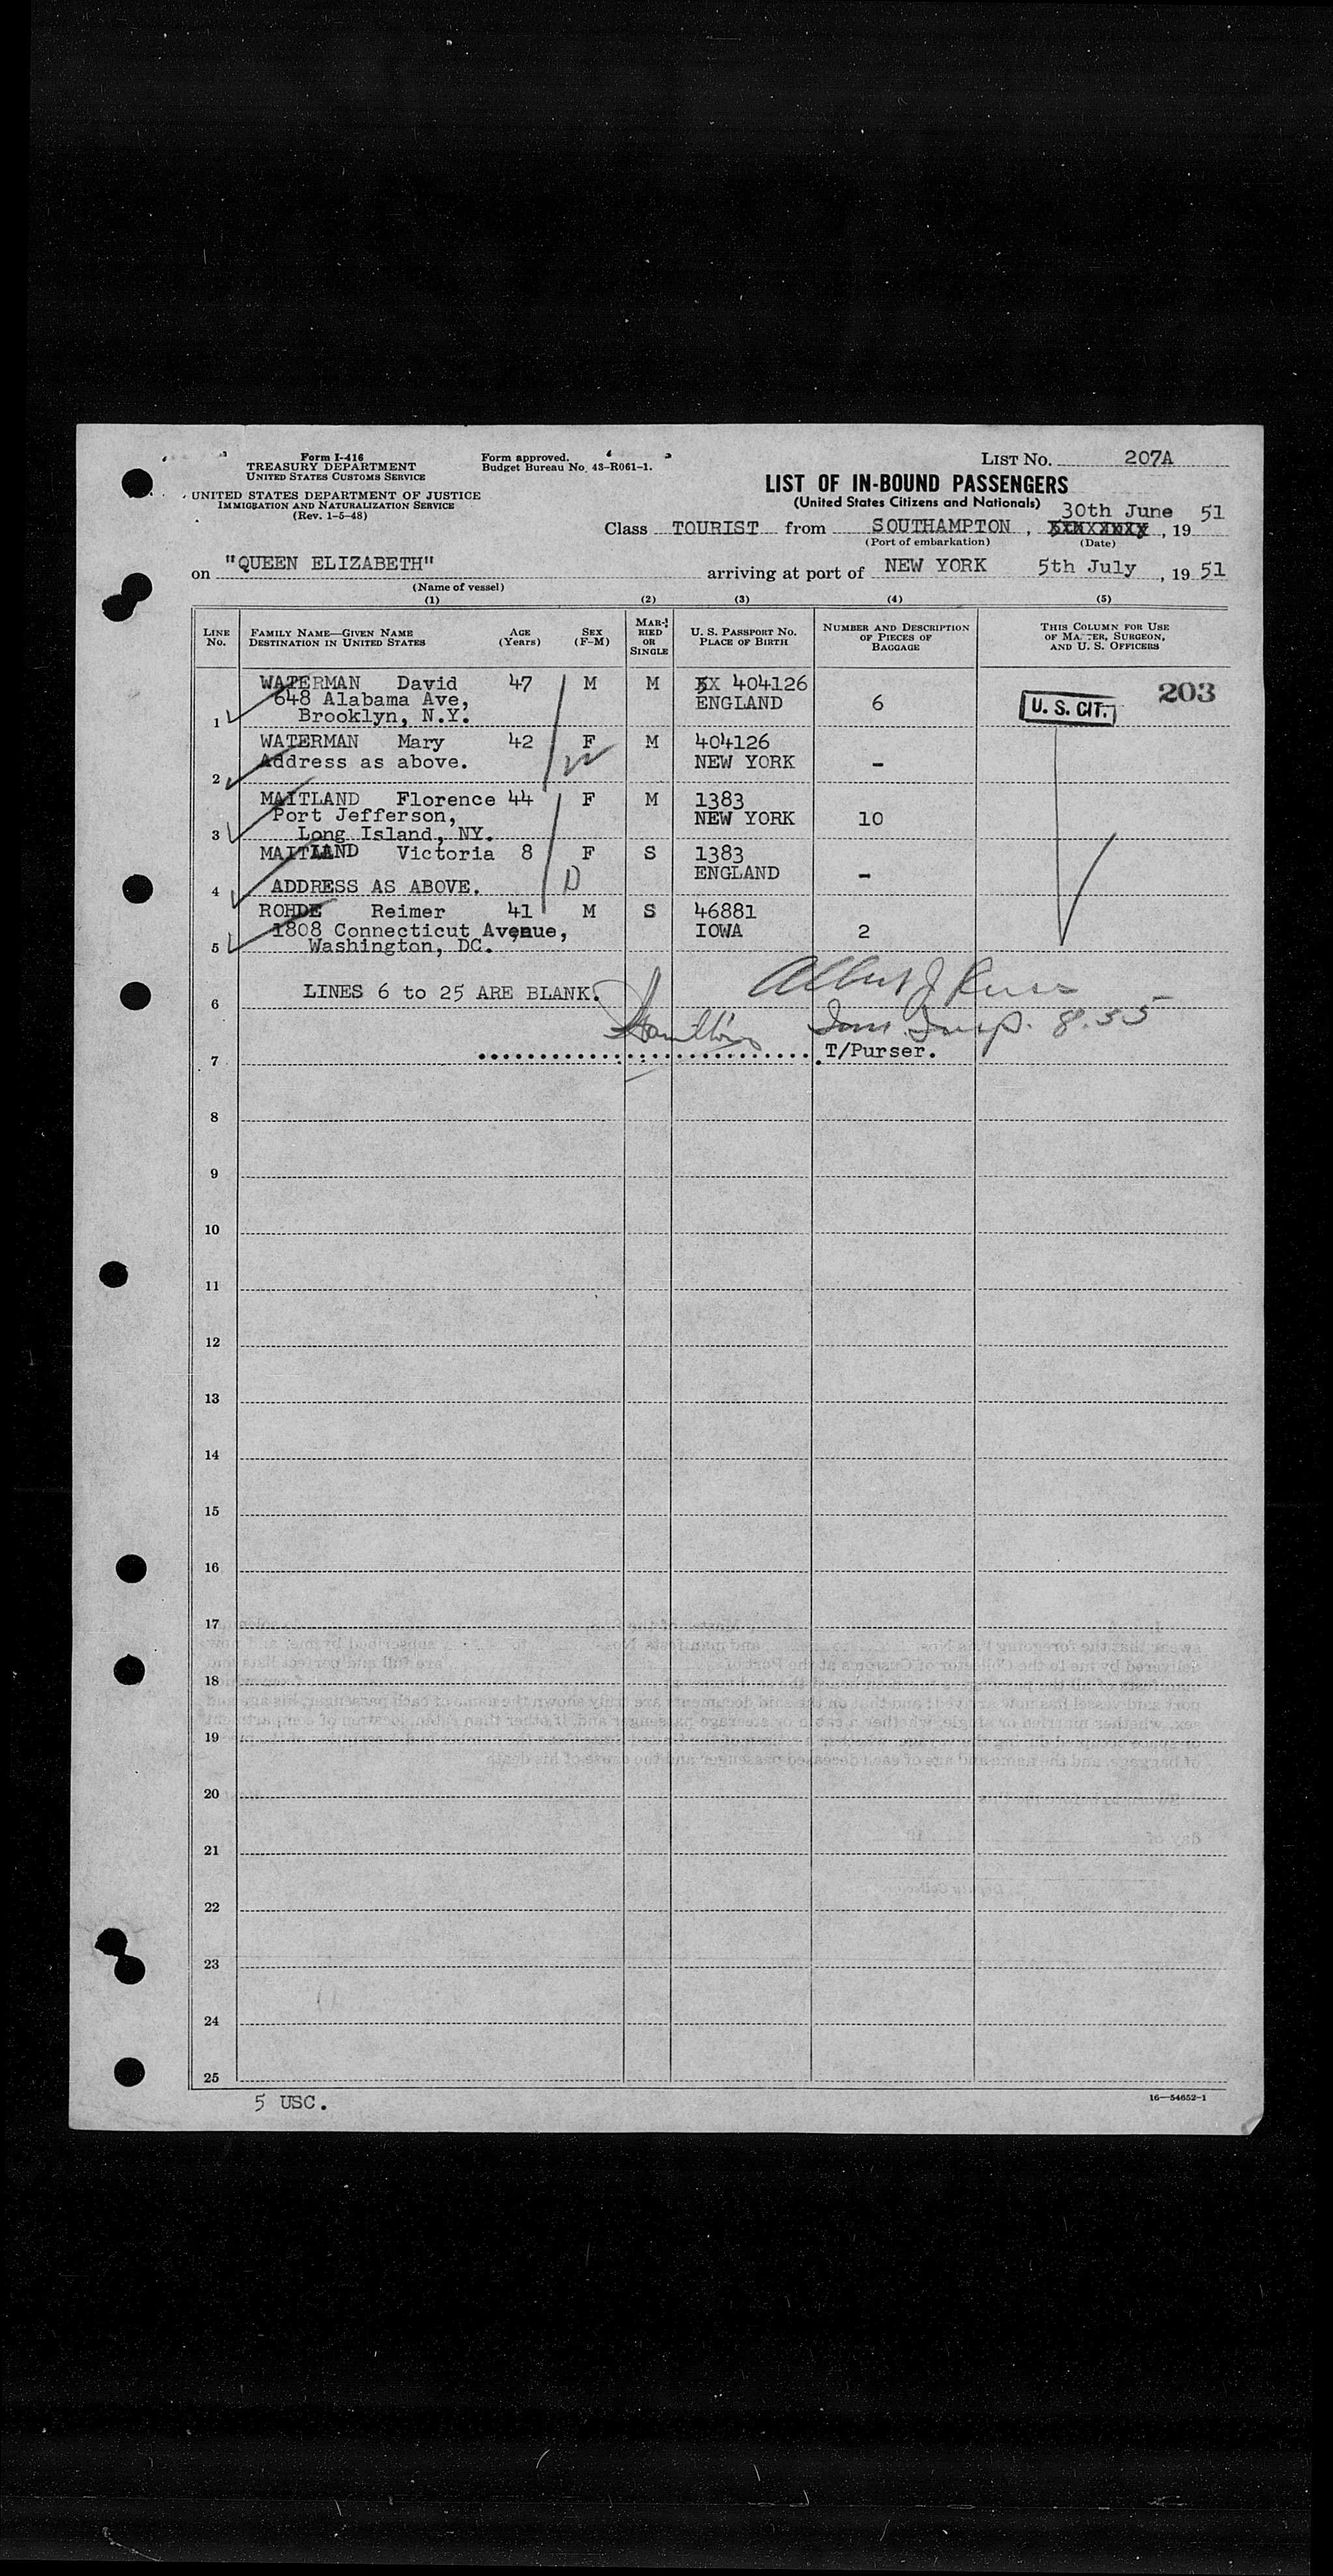 Form I-416
TREASURY DEPARTMENT
UNITED STATES CUSTOMS SERVICE
UNITED STATES DEPARTMENT OF JUSTICE
IMMIGRATION AND NATURALIZATION SERVICE
(Rev. 1-5-48)
Form approved.
Budget Bureau No. 43-R061-1.
LIST NO. 207A
LIST OF IN-BOUND PASSENGERS
(United States Citizens and Nationals)
30th June 51
Class TOURIST from SOUTHAMPTON , , 19
(Port of embarkation) (Date)
on "QUEEN ELIZABETH" arriving at port of NEW YORK 5th July , 19 51
(Name of vessel)
(1) (2) (3) (4) (5)
LINE No. FAMILY NAME—GIVEN NAME DESTINATION IN UNITED STATES AGE (Years) SEX (F-M) MARRIED OR SINGLE U. S. PASSPORT NO. PLACE OF BIRTH NUMBER AND DESCRIPTION OF PIECES OF BAGGAGE THIS COLUMN FOR USE OF MASTER, SURGEON, AND U. S. OFFICERS
WATERMAN David 47 M M X 404126 203
648 Alabama Ave, ENGLAND 6 U. S. CIT.
1 Brooklyn, N.Y.
WATERMAN Mary 42 F M 404126
Address as above. NEW YORK -
2
MAITLAND Florence 44 F M 1383
Port Jefferson, NEW YORK 10
3 Long Island, NY.
MAITLAND Victoria 8 F S 1383
ENGLAND -
4 ADDRESS AS ABOVE. D
ROHDE Reimer 41 M S 46881
1808 Connecticut Avenue, IOWA 2
5 Washington, DC.
6 LINES 6 to 25 ARE BLANK.
Insp. 8.55
7 T/Purser.
8
9
10
11
12
13
14
15
16
17
18
19
20
21
22
23
24
25
5 USC. 16—54652-1